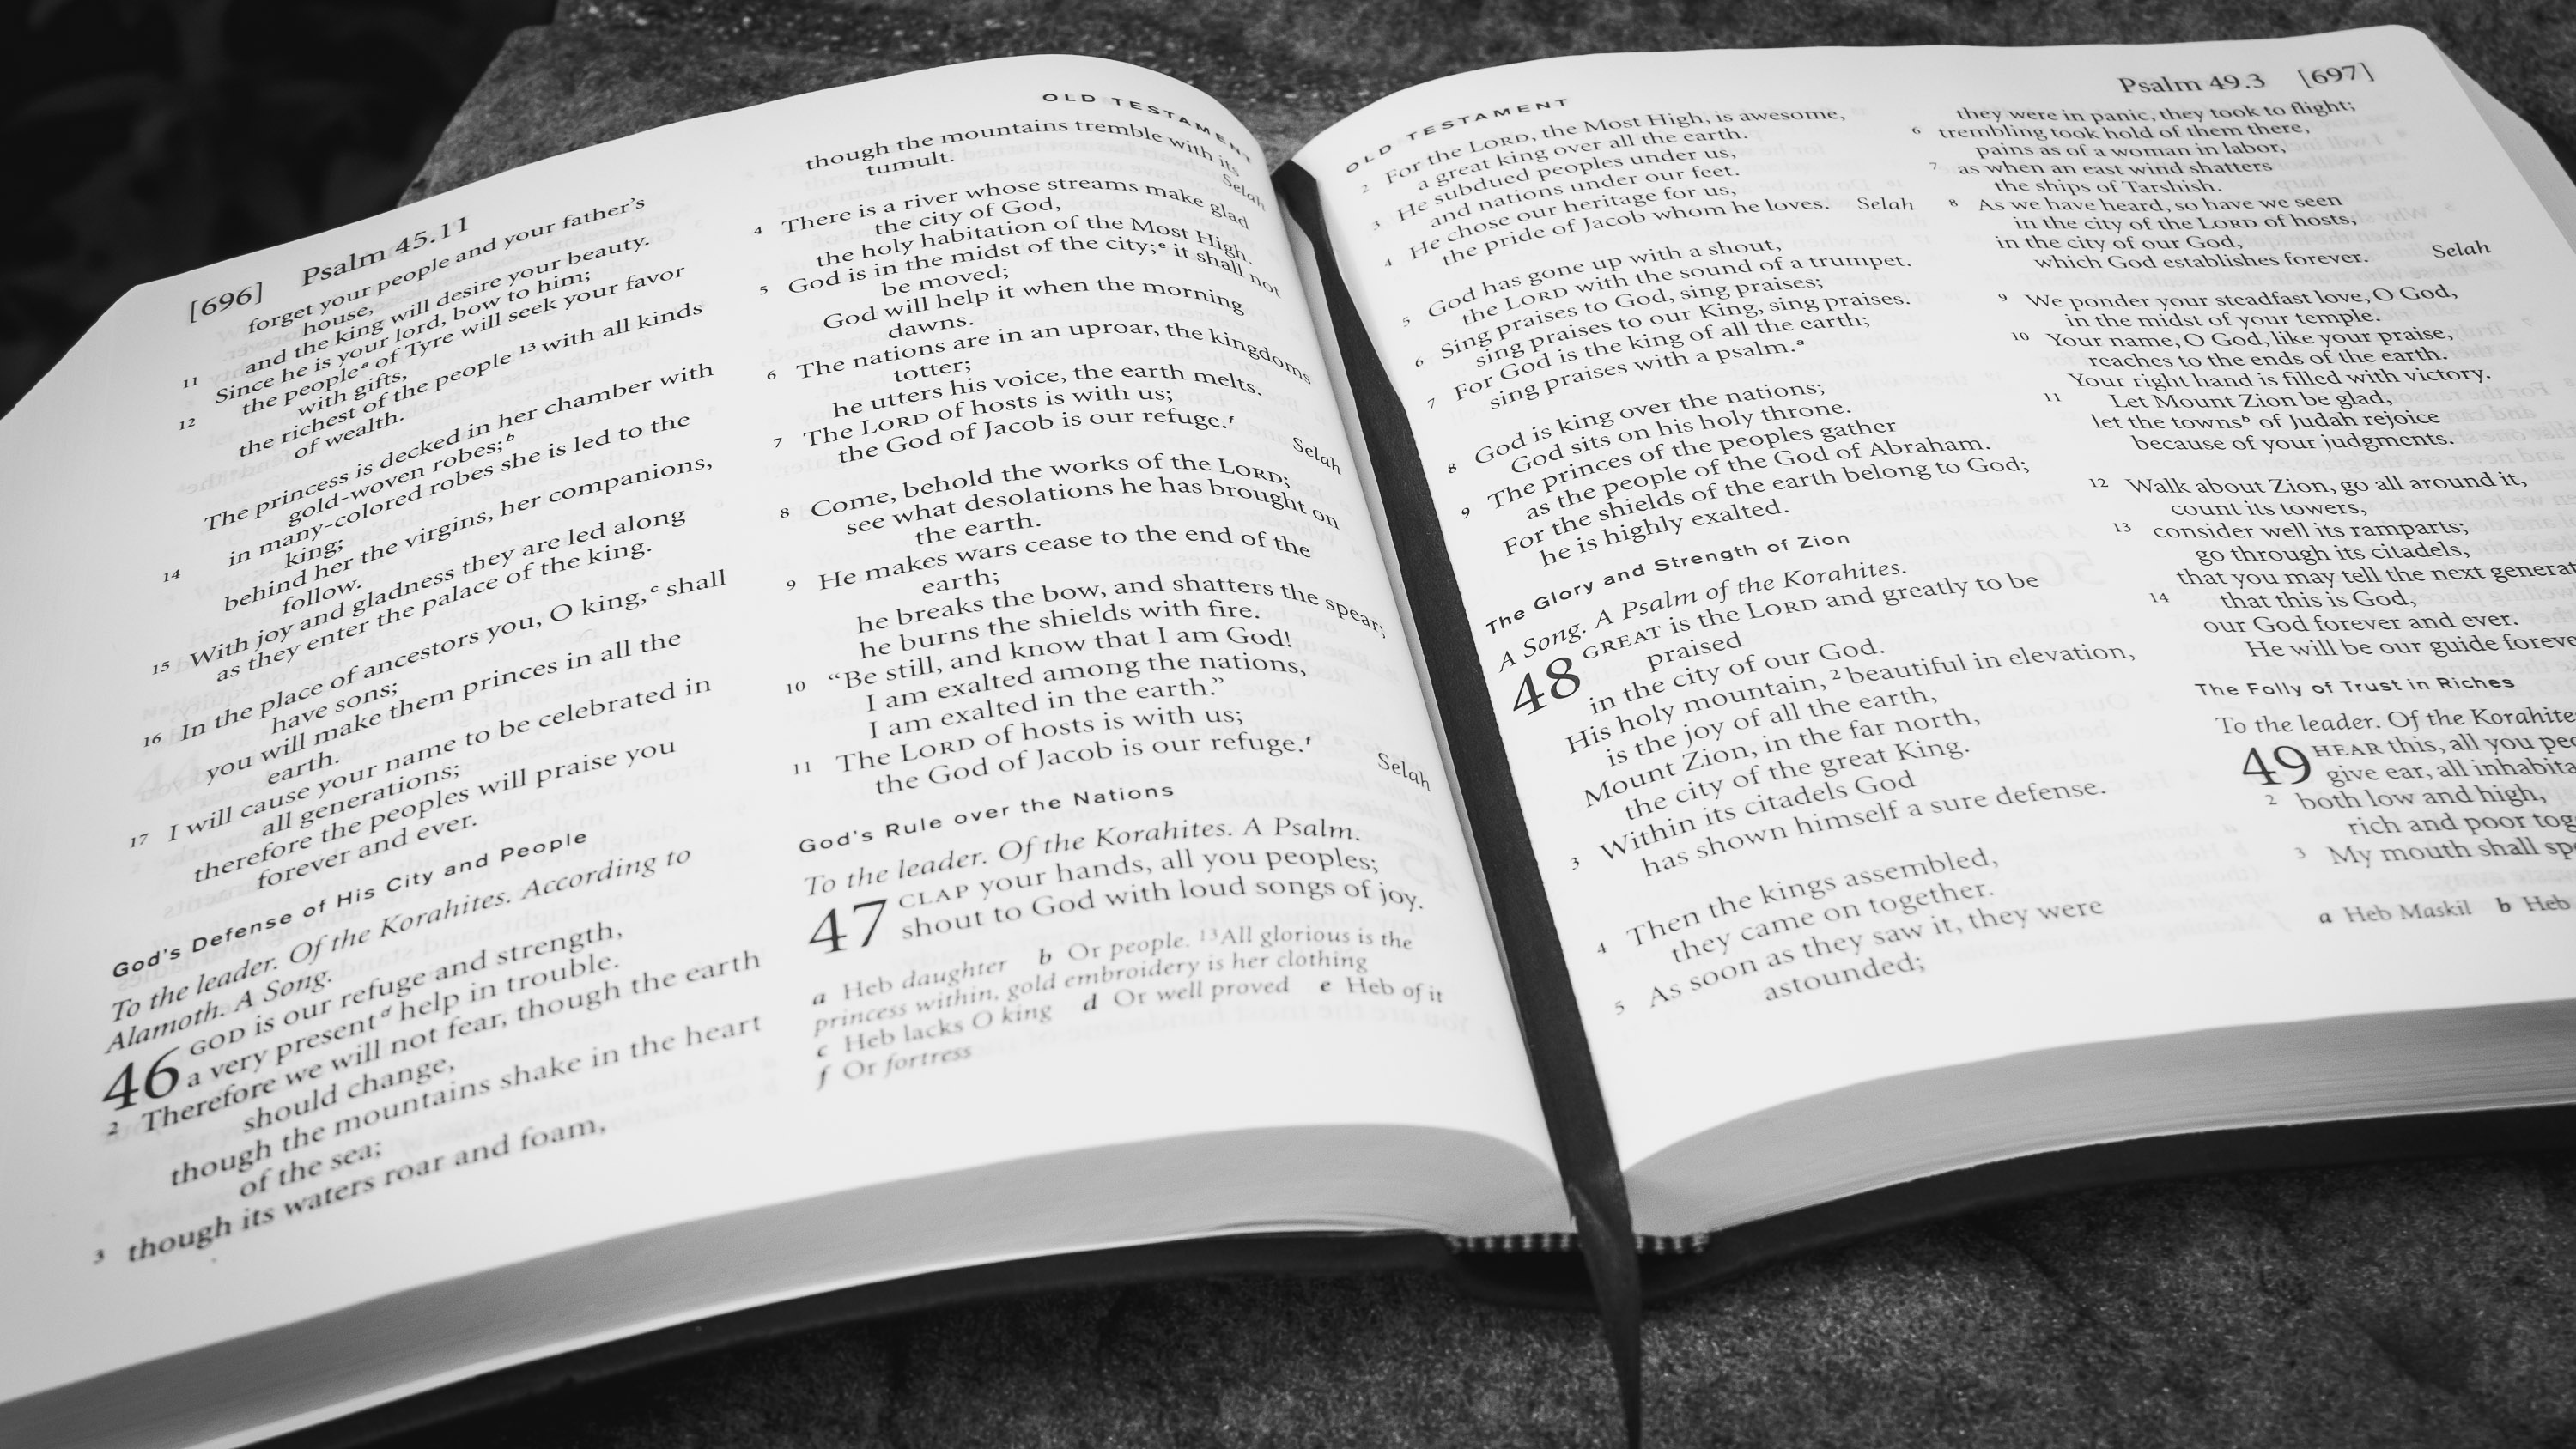 [696] Psalm 45.11
OLD TESTAMENT
forget your people and your father's
house,
11 and the king will desire your beauty.
Since he is your lord, bow to him;
12 the peopleᵃ of Tyre will seek your favor
with gifts,
the richest of the people ¹³ with all kinds
of wealth.
The princess is decked in her chamber with
gold-woven robes;ᵇ
14 in many-colored robes she is led to the
king;
behind her the virgins, her companions,
follow.
15 With joy and gladness they are led along
as they enter the palace of the king.
16 In the place of ancestors you, O king,ᶜ shall
have sons;
you will make them princes in all the
earth.
17 I will cause your name to be celebrated in
all generations;
therefore the peoples will praise you
forever and ever.
God's Defense of His City and People
To the leader. Of the Korahites. According to
Alamoth. A Song.
46 GOD is our refuge and strength,
a very presentᵈ help in trouble.
2 Therefore we will not fear, though the earth
should change,
though the mountains shake in the heart
of the sea;
3 though its waters roar and foam,
though the mountains tremble with its
tumult. Selah
4 There is a river whose streams make glad
the city of God,
the holy habitation of the Most High.
5 God is in the midst of the city;ᵉ it shall not
be moved;
God will help it when the morning
dawns.
6 The nations are in an uproar, the kingdoms
totter;
he utters his voice, the earth melts.
7 The LORD of hosts is with us;
the God of Jacob is our refuge.ᶠ Selah
8 Come, behold the works of the LORD;
see what desolations he has brought on
the earth.
9 He makes wars cease to the end of the
earth;
he breaks the bow, and shatters the spear;
he burns the shields with fire.
10 “Be still, and know that I am God!
I am exalted among the nations,
I am exalted in the earth.”
11 The LORD of hosts is with us;
the God of Jacob is our refuge.ᶠ Selah
God's Rule over the Nations
To the leader. Of the Korahites. A Psalm.
47 CLAP your hands, all you peoples;
shout to God with loud songs of joy.
a Heb daughter b Or people. ¹³All glorious is the
princess within, gold embroidery is her clothing
c Heb lacks O king d Or well proved e Heb of it
f Or fortress
OLD TESTAMENT
Psalm 49.3 [697]
2 For the LORD, the Most High, is awesome,
a great king over all the earth.
3 He subdued peoples under us,
and nations under our feet.
4 He chose our heritage for us,
the pride of Jacob whom he loves. Selah
5 God has gone up with a shout,
the LORD with the sound of a trumpet.
6 Sing praises to God, sing praises;
sing praises to our King, sing praises.
7 For God is the king of all the earth;
sing praises with a psalm.ᵃ
8 God is king over the nations;
God sits on his holy throne.
9 The princes of the peoples gather
as the people of the God of Abraham.
For the shields of the earth belong to God;
he is highly exalted.
The Glory and Strength of Zion
A Song. A Psalm of the Korahites.
48 GREAT is the LORD and greatly to be
praised
in the city of our God.
His holy mountain, ² beautiful in elevation,
is the joy of all the earth,
Mount Zion, in the far north,
the city of the great King.
3 Within its citadels God
has shown himself a sure defense.
4 Then the kings assembled,
they came on together.
5 As soon as they saw it, they were
astounded;
they were in panic, they took to flight;
6 trembling took hold of them there,
pains as of a woman in labor,
7 as when an east wind shatters
the ships of Tarshish.
8 As we have heard, so have we seen
in the city of the LORD of hosts,
in the city of our God,
which God establishes forever. Selah
9 We ponder your steadfast love, O God,
in the midst of your temple.
10 Your name, O God, like your praise,
reaches to the ends of the earth.
Your right hand is filled with victory.
11 Let Mount Zion be glad,
let the townsᵇ of Judah rejoice
because of your judgments.
12 Walk about Zion, go all around it,
count its towers,
13 consider well its ramparts;
go through its citadels,
that you may tell the next generat
14 that this is God,
our God forever and ever.
He will be our guide foreve
The Folly of Trust in Riches
To the leader. Of the Korahite
49 HEAR this, all you peo
give ear, all inhabita
2 both low and high,
rich and poor tog
3 My mouth shall sp
a Heb Maskil b Heb